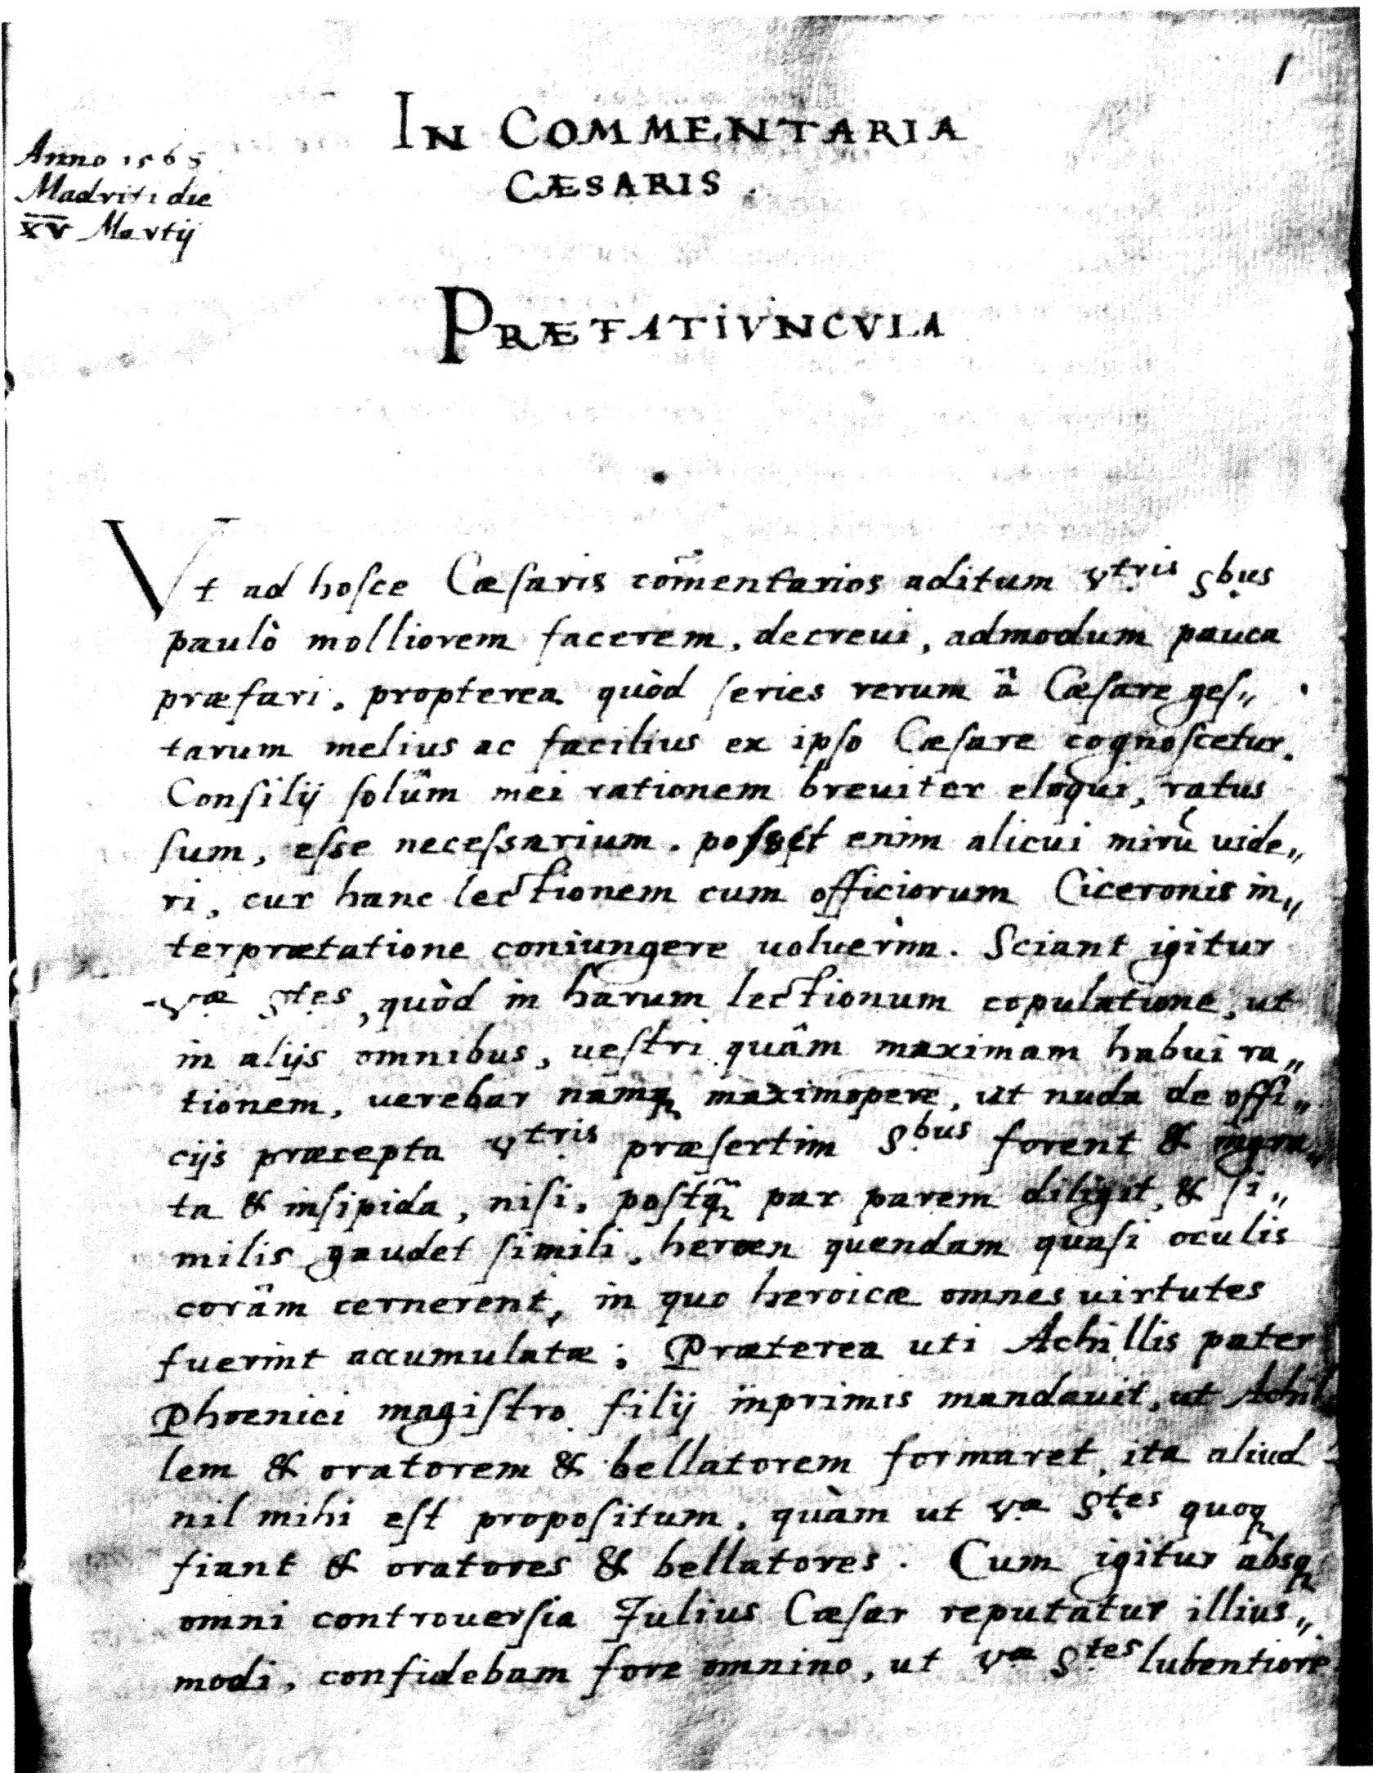 1
IN COMMENTARIA
CÆSARIS.
Anno 1565
Madriti die
XV Martij
PRÆFATIVNCVLA
Vt ad hosce Cæsaris com̃entarios aditum v.tris S.bus
paulò molliorem facerem, decreui, admodum pauca
præfari. propterea quòd series rerum â Cæsare ges„
tarum melius ac facilius ex ipso Cæsare cognoscetur.
Consilij solûm mei rationem breuiter eloqui, ratus
sum, esse necessarium. posset enim alicui mirũ uide„
ri, cur hanc lectionem cum officiorum Ciceronis in„
terprætatione coniungere uoluerim. Sciant igitur
v.æ S.tes, quòd in harum lectionum copulatione, ut
in alijs omnibus, uestri quâm maximam habui ra„
tionem, uerebar namq maximopere, ut nuda de offi„
cijs præcepta v.tris præsertim S.bus forent & ingra„
ta & insipida, nisi, postq̃ par parem diligit, & si„
milis gaudet simili, heroen quendam quasi oculis
corâm cernerent, in quo heroicæ omnes uirtutes
fuerint accumulatæ; Præterea uti Achillis pater
Phœnici magistro filij inprimis mandauit, ut Achil
lem & oratorem & bellatorem formaret, ita aliud
nil mihi est propositum, quàm ut v.æ S.tes quoq
fiant & oratores & bellatores. Cum igitur absq
omni controuersia Julius Cæsar reputatur illius„
modi, confidebam fore omnino, ut v.æ S.tes lubentiore